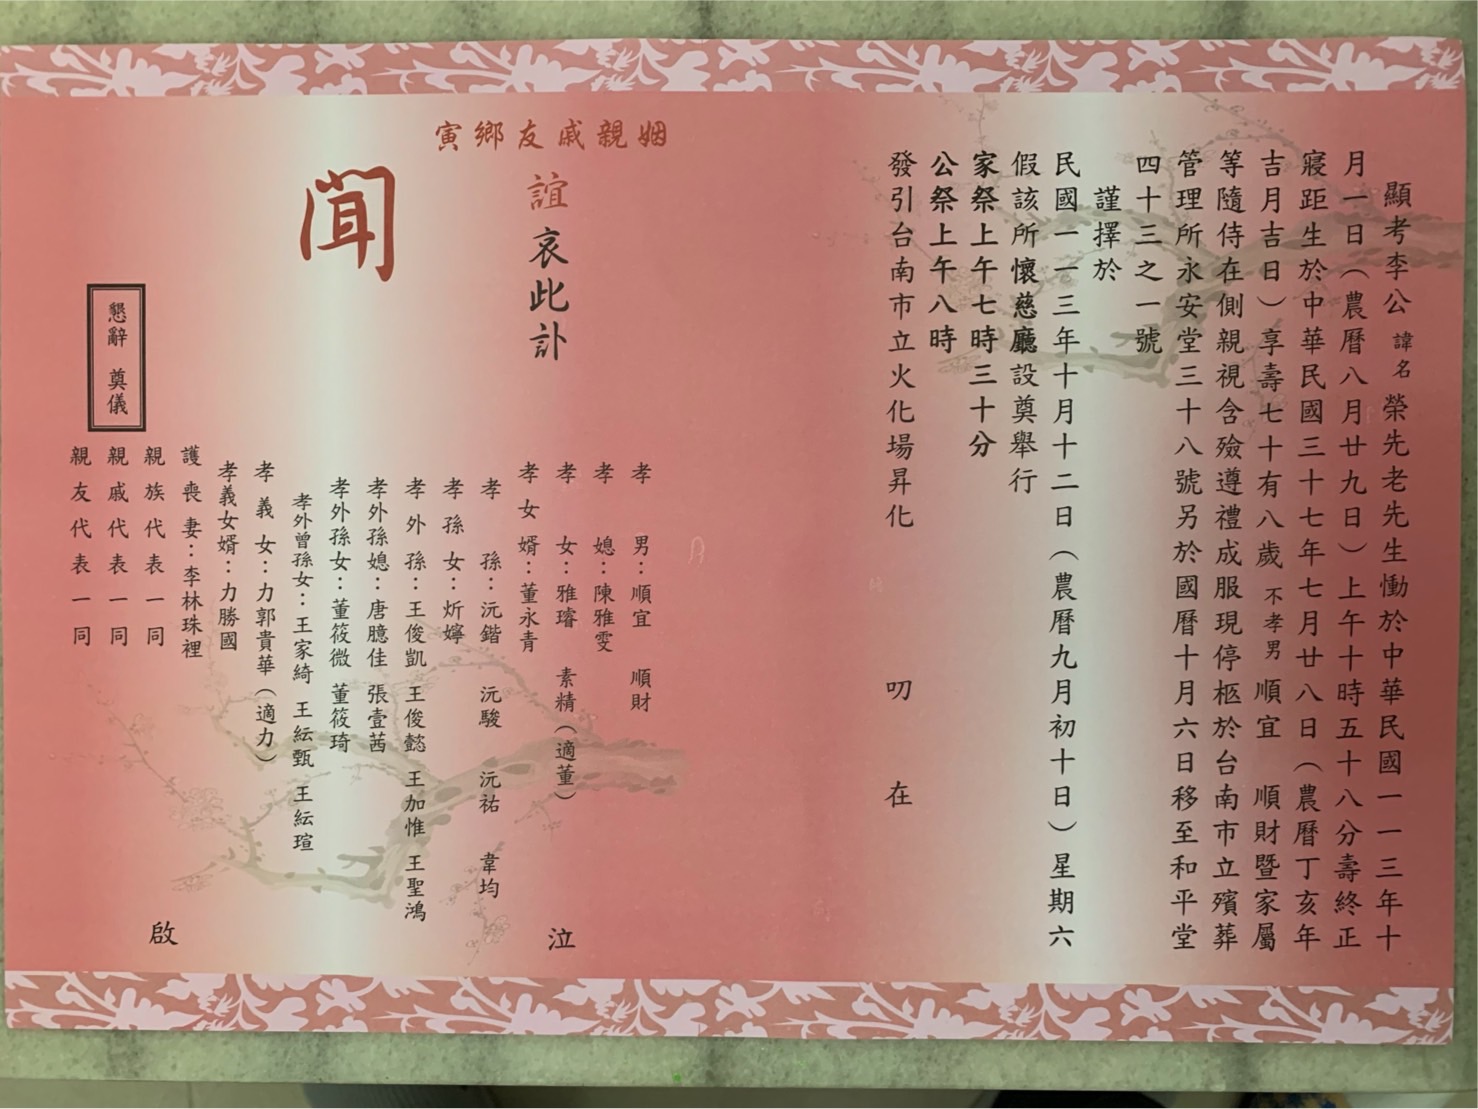 顯考李公諱名榮先老先生慟於中華民國一一三年十
月一日（農曆八月廿九日）上午十時五十八分壽終正
寢距生於中華民國三十七年七月廿八日（農曆丁亥年
吉月吉日）享壽七十有八歲不孝男順宜 順財暨家屬
等隨侍在側親視含殮遵禮成服現停柩於台南市立殯葬
管理所永安堂三十八號另於國曆十月六日移至和平堂
四十三之一號
謹擇於
民國一一三年十月十二日（農曆九月初十日）星期六
假該所懷慈廳設奠舉行
家祭上午七時三十分
公祭上午八時
發引台南市立火化場昇化 叨 在
寅鄉友戚親姻
誼哀此訃
聞
孝 男：順宜 順財
孝 媳：陳雅雯
孝 女：雅璿 素精（適董）
孝女婿：董永青
孝 孫：沅鍇 沅駿 沅祐 韋均
孝孫女：炘嬣
孝外孫：王俊凱 王俊懿 王加惟 王聖鴻
孝外孫媳：唐臆佳 張壹茜
孝外孫女：董筱微 董筱琦
孝外曾孫女：王家綺 王紜甄 王紜瑄
孝義女：力郭貴華（適力）
孝義女婿：力勝國
護喪妻：李林珠裡
親族代表一同
親戚代表一同
親友代表一同
泣
啟
懇辭 奠儀